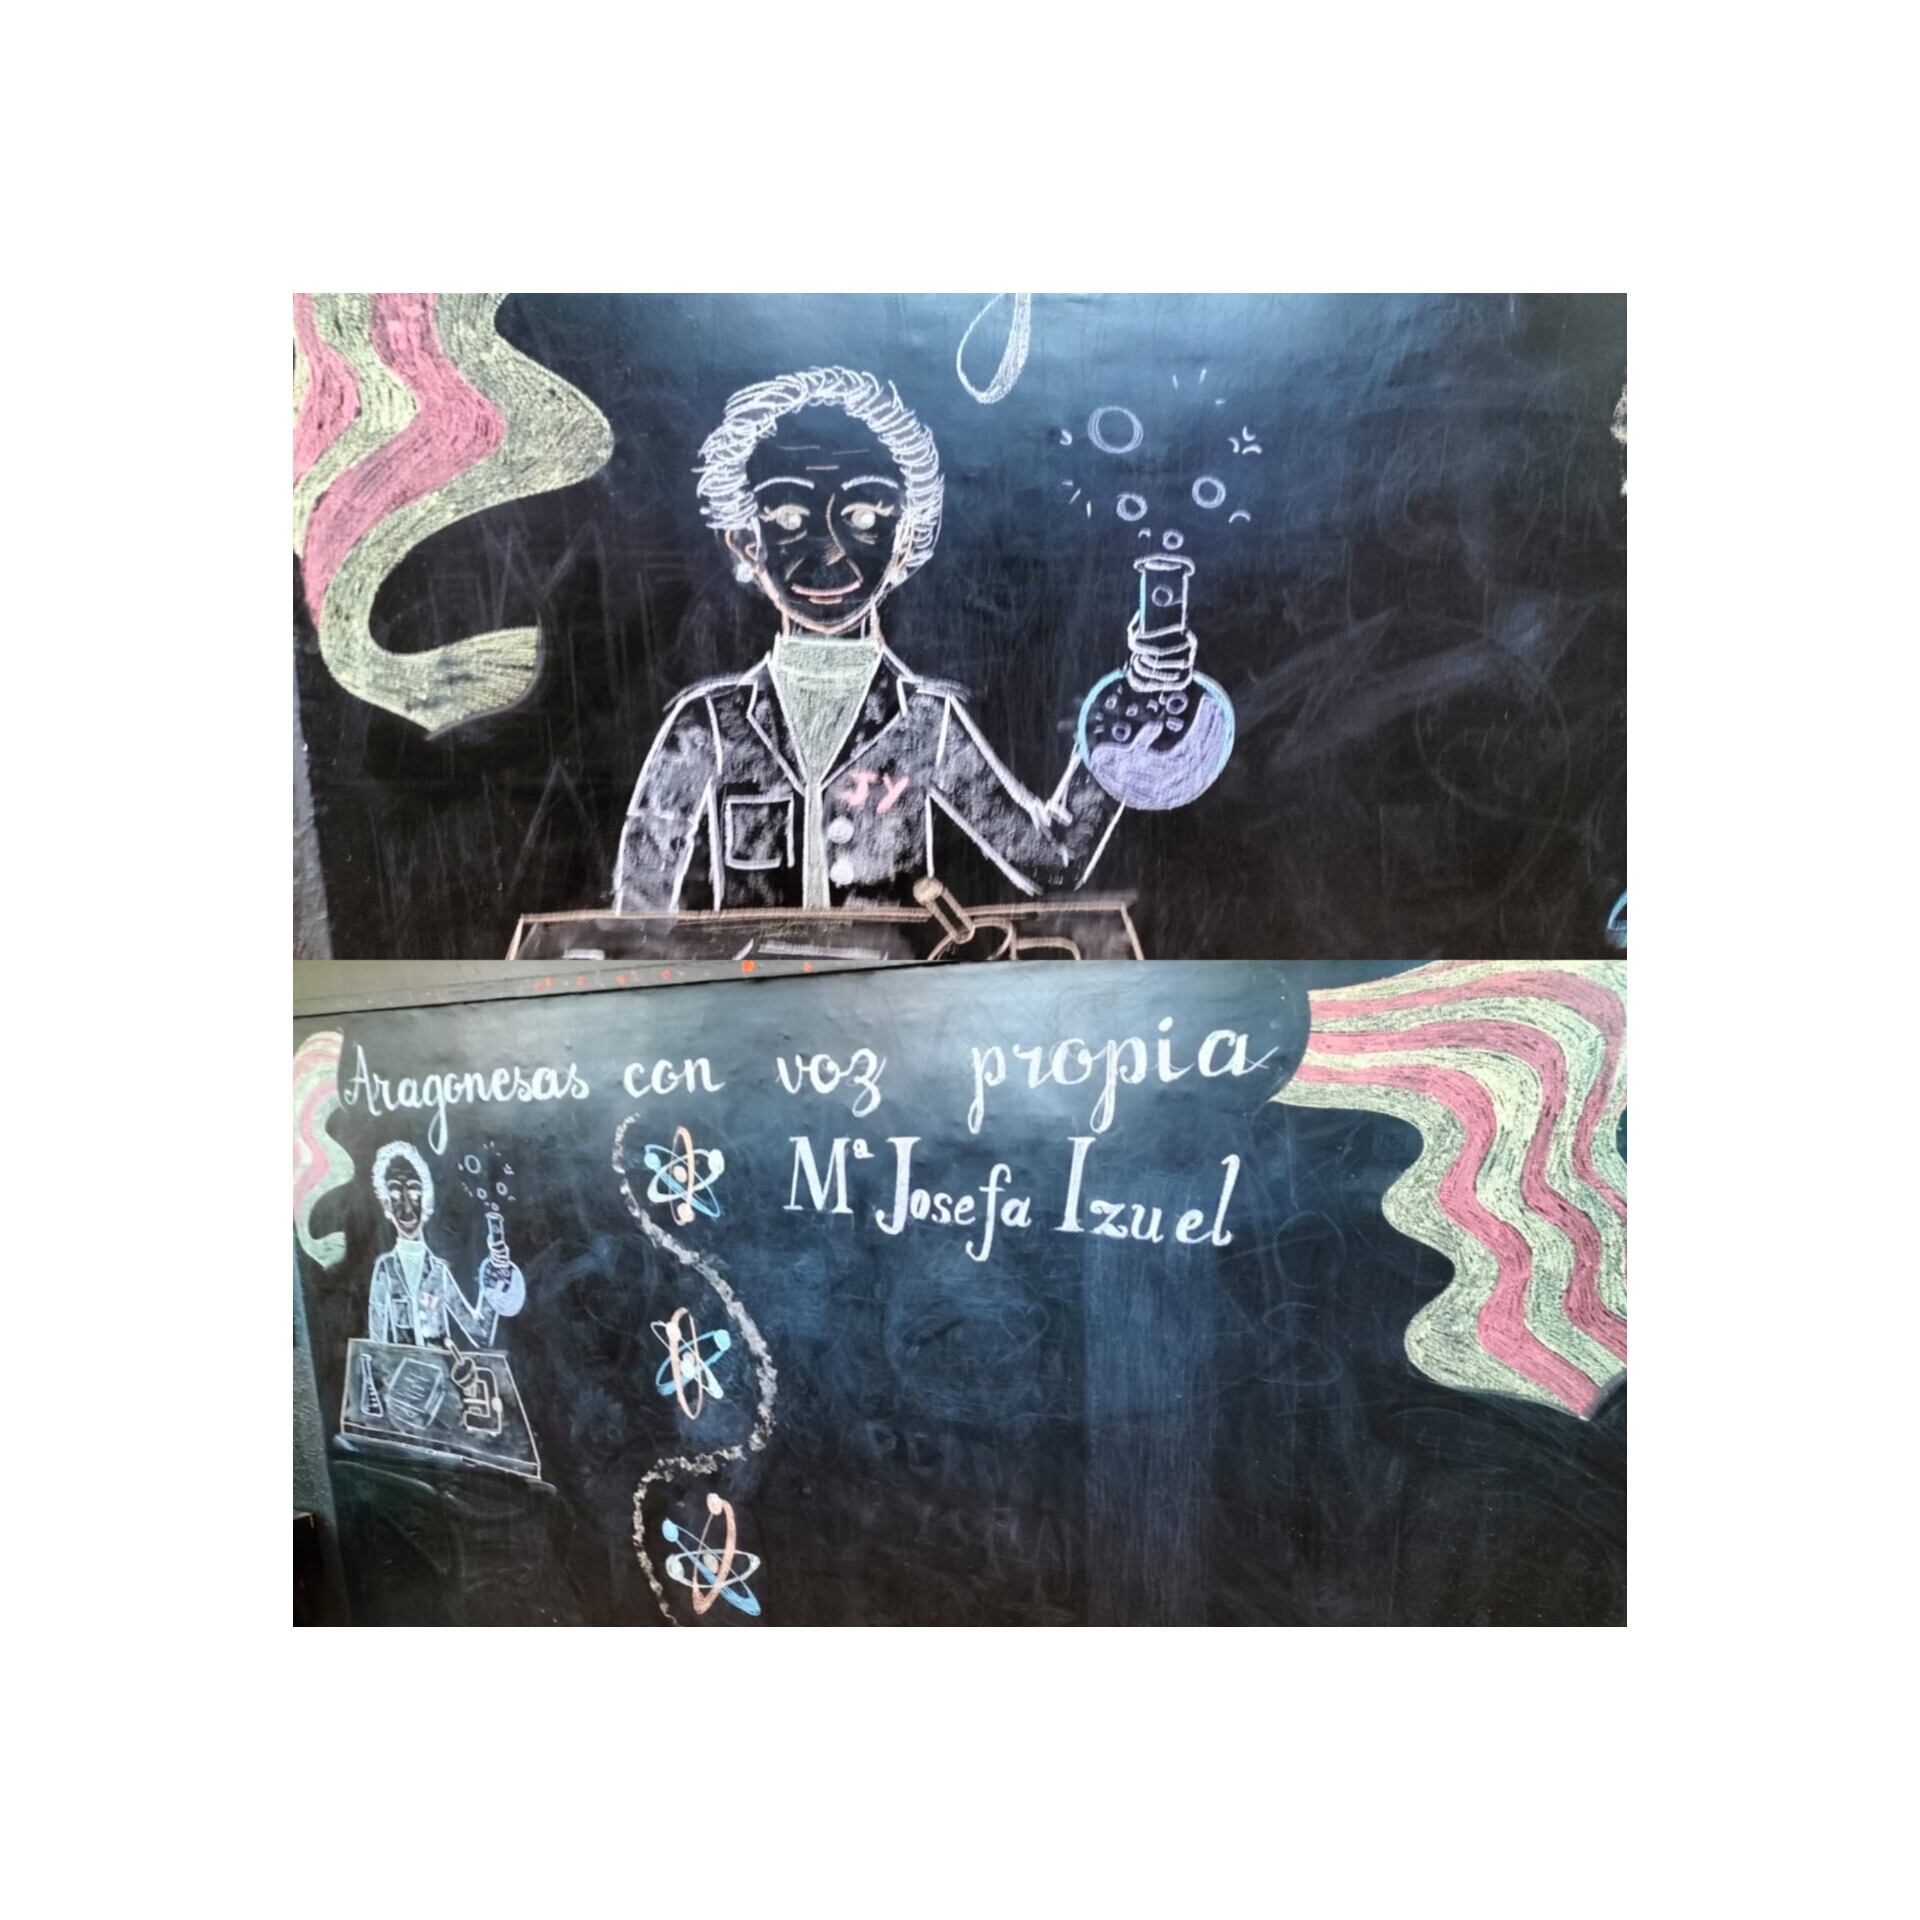 JY
Aragonesas con voz propia
Mª Josefa Izuel
JY